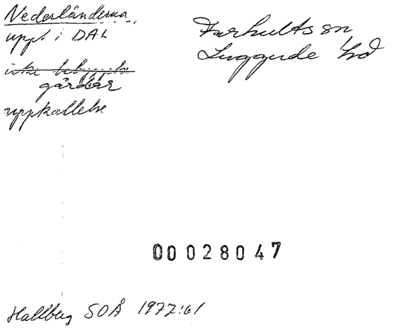 Nederländerna
uppt i DAL
icke bebyggda
gårdar
uppkallelse
Farhults sn,
Luggude hd
00028047
Hallberg SOÅ 1977:61